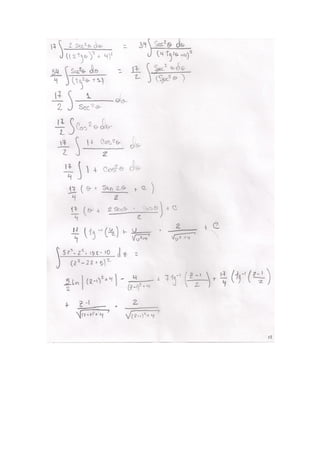 17 ∫ 2 Sec²θ dθ / ((2tgθ)² + 4)² = 34 ∫ Sec²θ dθ / (4tg²θ+4)²
34/4 ∫ Sec²θ dθ / (tg²θ + 1) = 17/2 ∫ Sec²θ dθ / (Sec²θ)
17/2 ∫ 1 / Sec²θ dθ
17/2 ∫ Cos²θ dθ
17/2 ∫ 1 + Cos²θ / 2 dθ
17/4 ∫ 1 + Cos²θ dθ
17/4 (θ + Sen 2θ / 2 + C)
17/4 (θ + 2 Senθ · Cosθ / 2) + C
17/4 (tg⁻¹(u/2) + u/√u²+4 · 2/√u²+4 + C
∫ 5z³-z²-15z-10 / (z²-2z+5)² dz =
5/2 ln |(z-1)²+4| - 4/(z-1)²+4 + 7 tg⁻¹(z-1/2) + 17/4 (tg⁻¹(z-1/2)
+ z-1/√(z-1)²+4 · 2/√(z-1)²+4